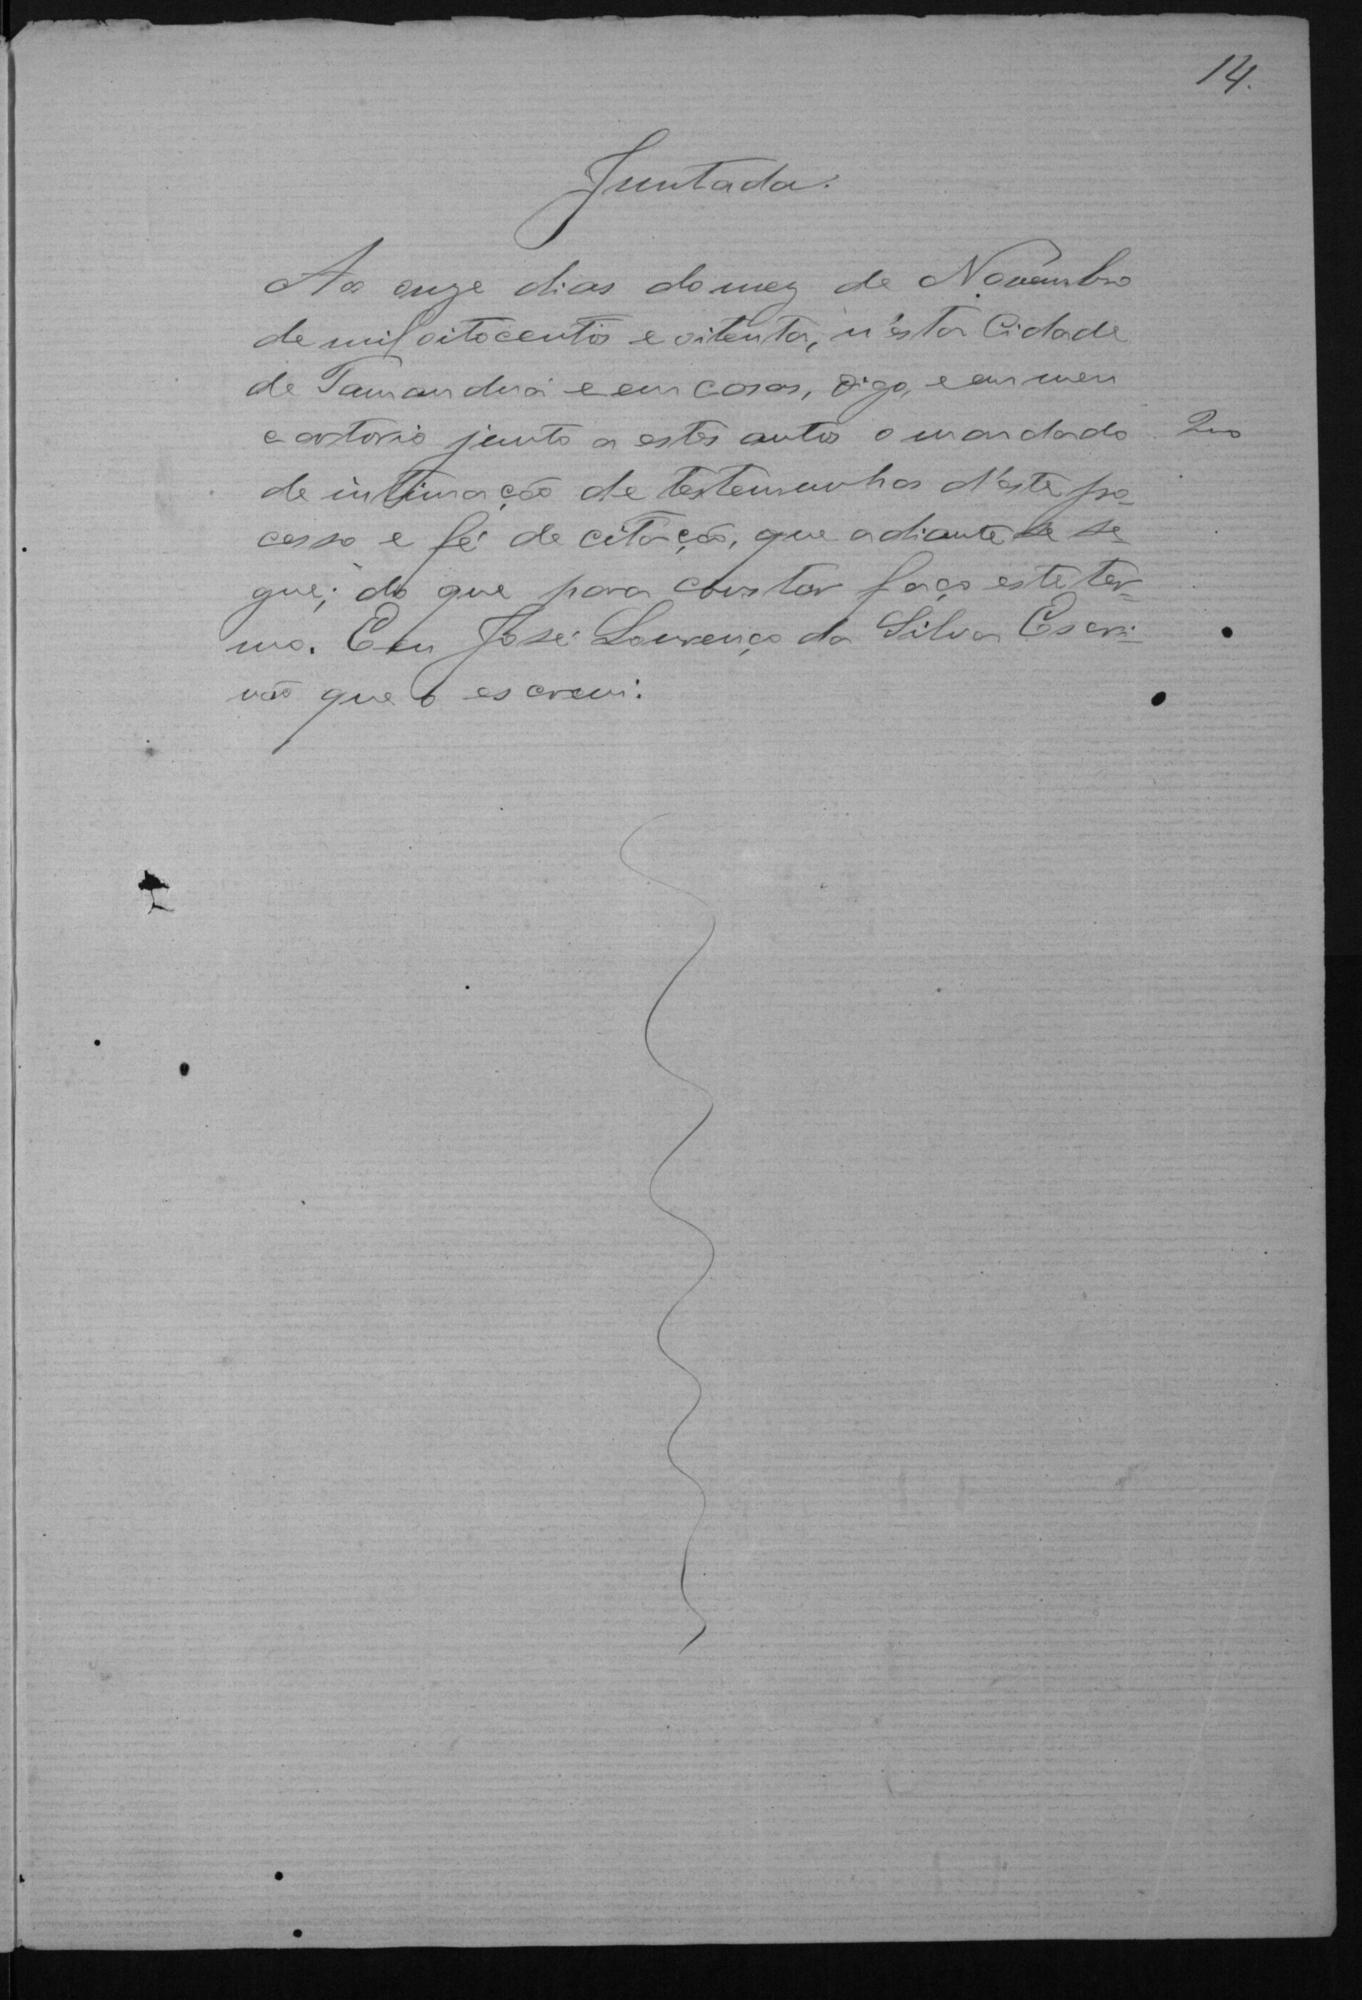 14.
Juntada.
Aos onze dias do mez de Novembro
de mil oitocentos e oitenta, n'esta Cidade
de Tamanduá e em casas, digo, e em meu
cartorio junto a estes autos o mandado
de intimação de testemunhas d'este pro-
cesso e fé de citação, que adiante se se
gue; do que para constar faço este ter-
mo. Eu José Lourenço da Silva Escri-
vão que o escrevi.